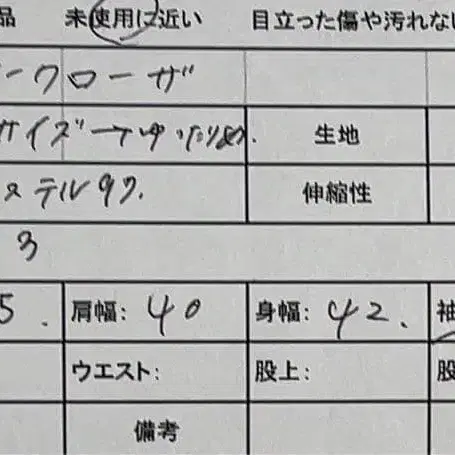 品 未使用に近い 目立った傷や汚れない
ークローザ
サイズ→ゆったりめ. 生地
ステル97. 伸縮性
3
5. 肩幅: 40 身幅: 42. 袖
ウエスト: 股上: 股
備考